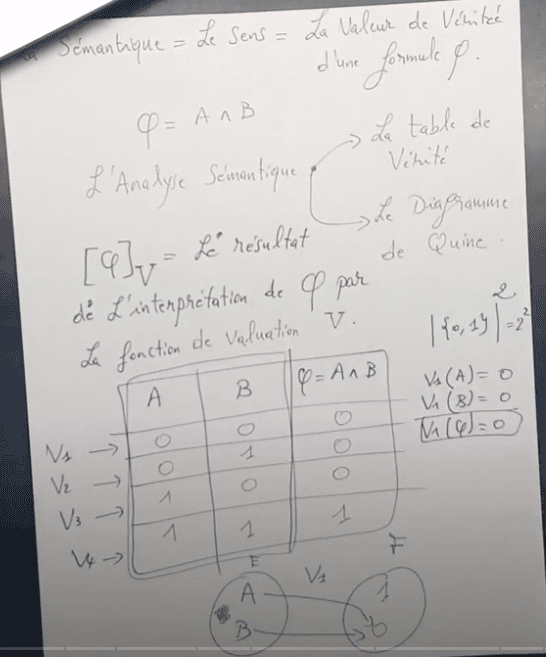 Sémantique = Le Sens = La Valeur de Vérité
d'une formule φ.
φ = A ∧ B
L'Analyse Sémantique
La table de
Vérité
Le Diagramme
de Quine.
[φ]V = Le résultat
de L'interprétation de φ par
La fonction de Valuation V.
|{0,1}|² = 2²
V1(A) = 0
V1(B) = 0
V1(φ) = 0
A B φ = A ∧ B
V1 → 0 0 0
V2 → 0 1 0
V3 → 1 0 0
V4 → 1 1 1
E V1 F
A 1
B 0